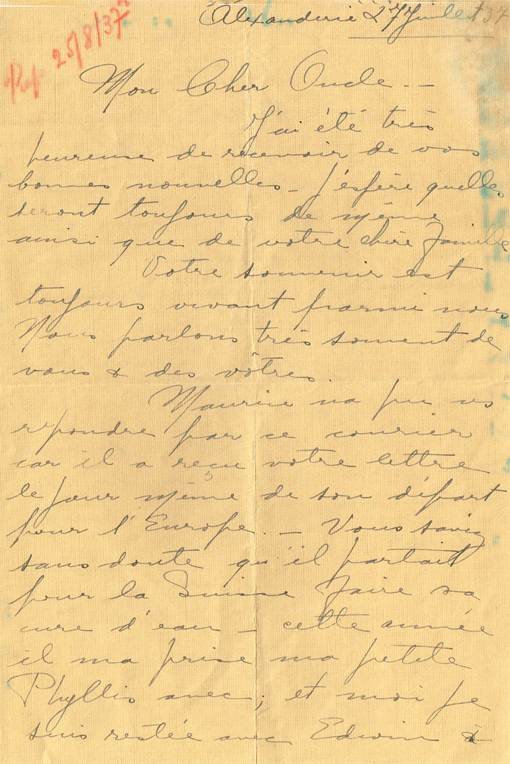 Alexanderie 27 Juillet 37
Rep 25/8/37
Mon Cher Oncle. –
J'ai été très
heureuse de recevoir de vos
bonnes nouvelles – J'espère quelles
seront toujours de même
ainsi que de votre chère famille
Votre souvenir est
toujours vivant parmi nous
Nous parlons très souvent de
vous & des vôtres.
Maurice na pu vs
repondre par ce courier
car il a reçu votre lettre
le jour même de son départ
pour l'Europe. – Vous savez
sans doute qu'il partait
pour la Suisse faire sa
cure d'eau – cette année
il ma prise ma petite
Phyllis avec; et moi je
suis restée avec Edwin &